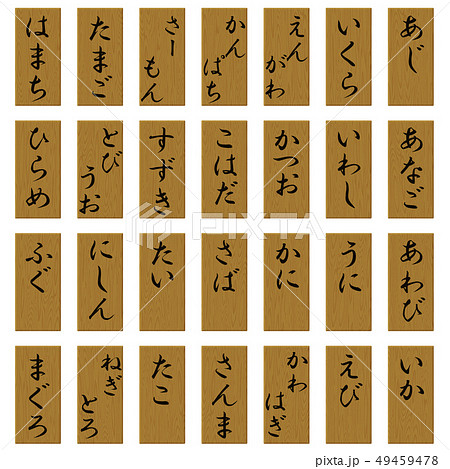 あじ
いくら
えん
がわ
かん
ぱち
さー
もん
たまご
はまち
あなご
いわし
かつお
こはだ
すずき
とび
うお
ひらめ
あわび
うに
かに
さば
たい
にしん
ふぐ
いか
えび
かわ
はぎ
さんま
たこ
ねぎ
とろ
まぐろ
49459478